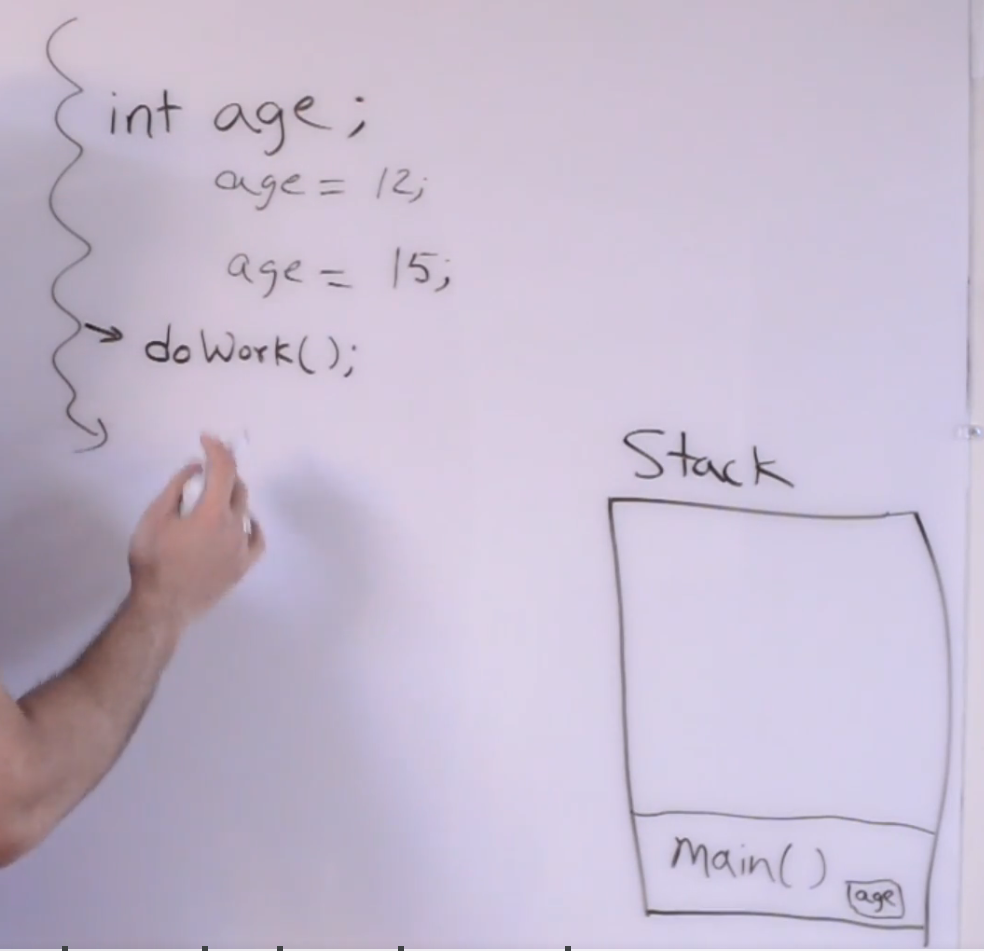 int age;
age = 12;
age = 15;
doWork();
Stack
Main()
age